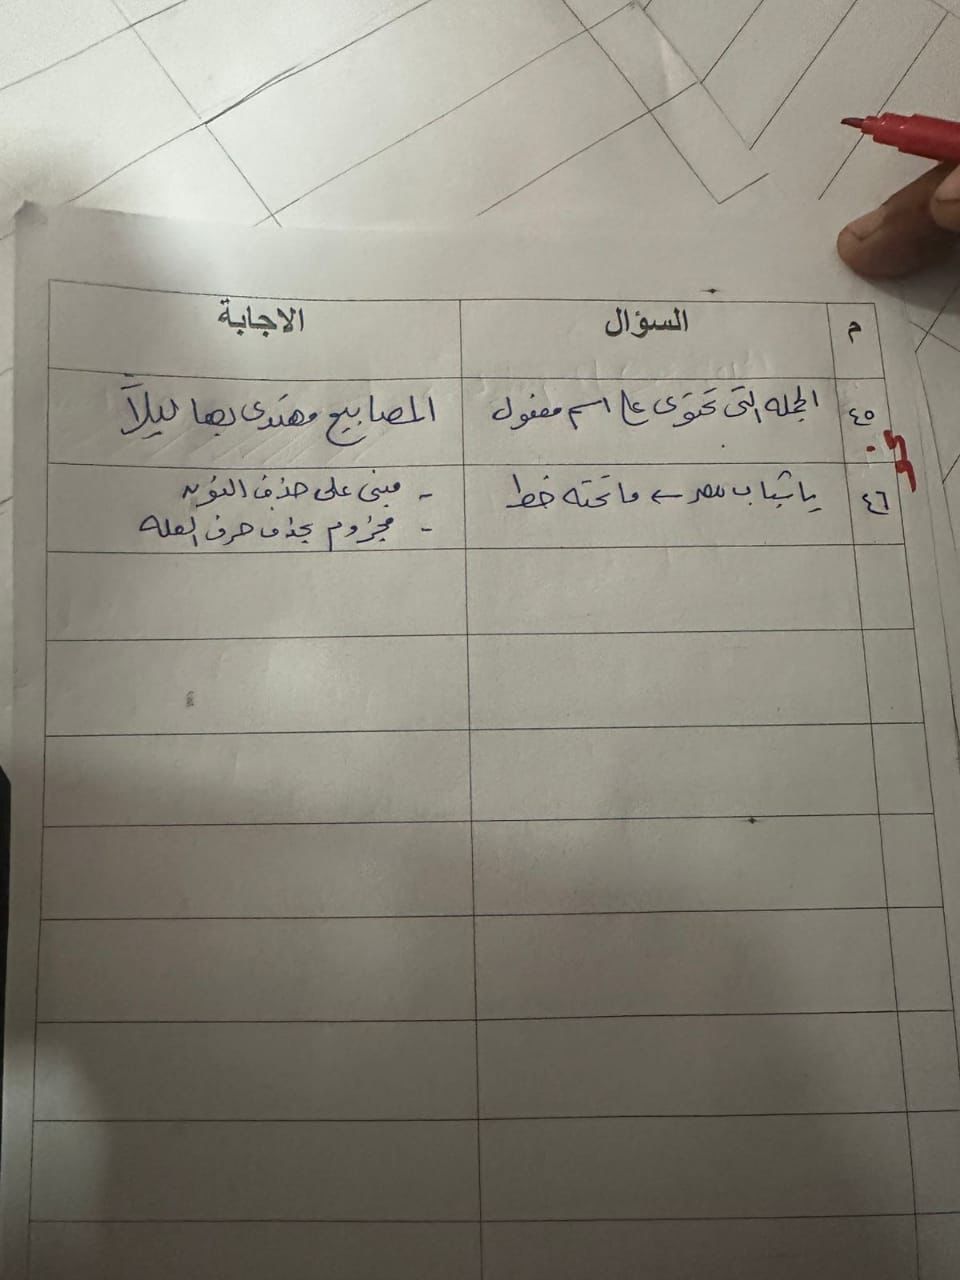 م السؤال الاجابة
٤٥ الجمله التى تحتوى على اسم مفعول المصابيح مهتدى بها ليلاً
٤٦ يا شباب مصر ← ما تحته خط - مبنى على حذف النون
- مجزوم بحذف حرف العله